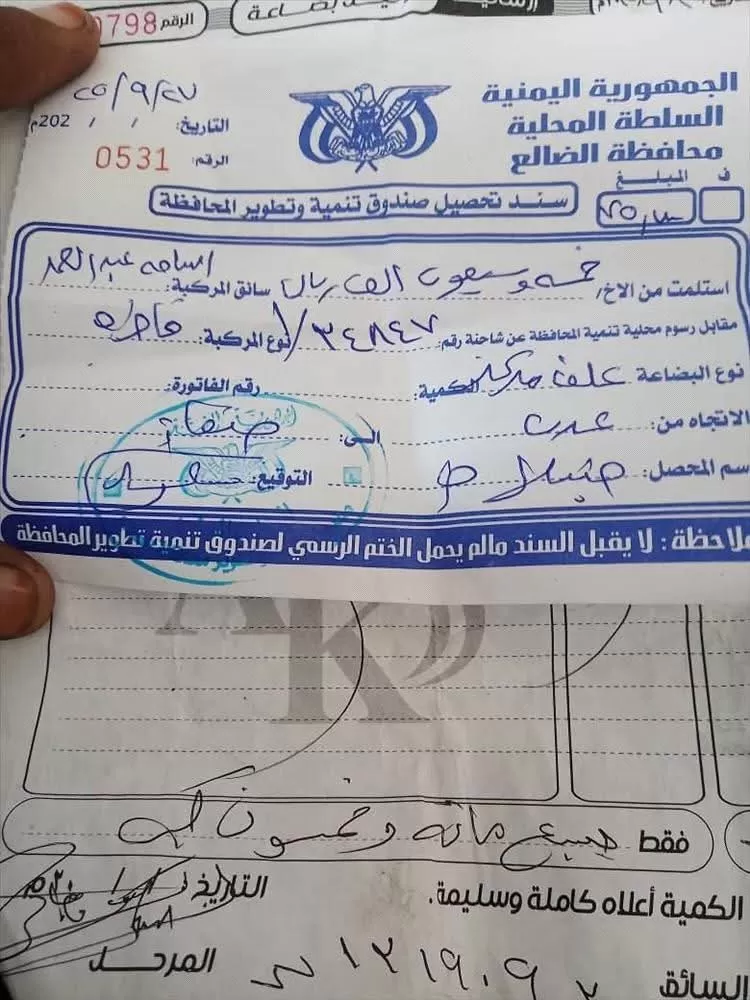 الرقم 0798
الجمهورية اليمنية
السلطة المحلية
محافظة الضالع
٢٥/٩/٢٧
التاريخ: / / 202م
الرقم: 0531
المبلغ ف
سند تحصيل صندوق تنمية وتطوير المحافظة
استلمت من الاخ/ خمسه وسبعون الف ريال سائق المركبة: اسامه عبدالحمد
مقابل رسوم محلية تنمية المحافظة عن شاحنة رقم: ٣٤٨٤٧/١ نوع المركبة: قاطره
نوع البضاعة علف مركز الكمية: رقم الفاتورة:
الاتجاه من: عدن الى: صنعاء
سم المحصل: التوقيع:
ملاحظة: لا يقبل السند مالم يحمل الختم الرسمي لصندوق تنمية تطوير المحافظة
فقط سبع مائه وخمسون
الكمية أعلاه كاملة وسليمة. التاريخ
السائق المرحل